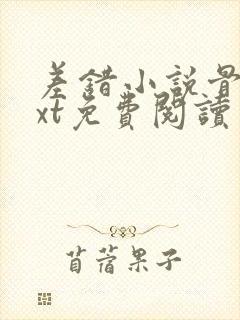 差錯小説骨
xt免費閲讀
苜蓿果子